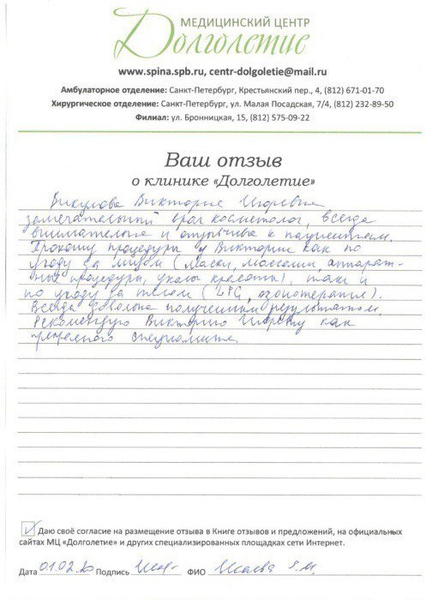 МЕДИЦИНСКИЙ ЦЕНТР
Долголетие
www.spina.spb.ru, centr-dolgoletie@mail.ru
Амбулаторное отделение: Санкт-Петербург, Крестьянский пер., 4, (812) 671-01-70
Хирургическое отделение: Санкт-Петербург, ул. Малая Посадская, 7/4, (812) 232-89-50
Филиал: ул. Бронницкая, 15, (812) 575-09-22
Ваш отзыв
о клинике «Долголетие»
Викулова Виктория Игоревна
замечательный врач косметолог, всегда
внимательна и отзывчива к пациентам.
Прохожу процедуры у Виктории как по
уходу за лицом (маски, массажи, аппарат-
ные процедуры, уколы красоты), так и
по уходу за телом (LPG, озонотерапия).
Всегда довольна полученным результатом.
Рекомендую Викторию Игоревну как
прекрасного специалиста
Даю своё согласие на размещение отзыва в Книге отзывов и предложений, на официальных
сайтах МЦ «Долголетие» и других специализированных площадках сети Интернет.
Дата 01.02.20 Подпись ФИО Исаева